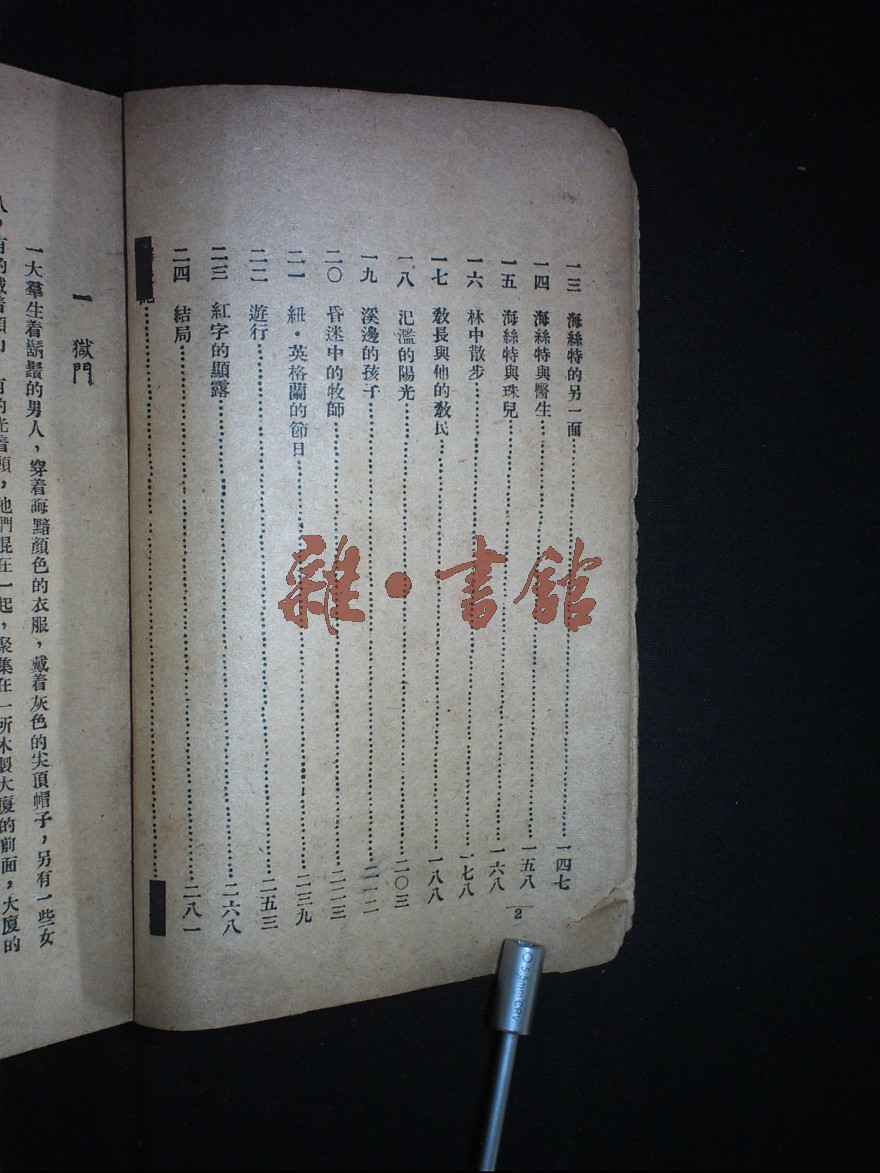 一三 海絲特的另一面……一四七
一四 海絲特與醫生……一五八
一五 海絲特與珠兒……一六八
一六 林中散步……一七八
一七 敎長與他的敎民……一八八
一八 氾濫的陽光……二〇三
一九 溪邊的孩子……二一二
二〇 昏迷中的牧師……二二三
二一 紐·英格蘭的節日……二三九
二二 遊行……二五三
二三 紅字的顯露……二六八
二四 結局……二八一
2
一 獄門
一大羣生着鬍鬚的男人，穿着晦黯顏色的衣服，戴着灰色的尖頂帽子，另有一些女
人，有的戴着頭巾，有的光着頭，他們混在一起，聚集在一所木製大廈的前面，大廈的
雜·書館
0.5mm